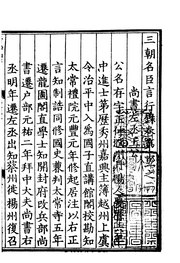 三朝名臣言行錄
尚書左丞王公
公名存字正仲潤州丹陽人慶曆
中進士第歷秀州嘉興主簿越州上虞
令治平中入為國子直講館閣校勘知
太常禮院元豐元年修起居注以右正
言知制誥同修國史兼判太常寺五年
遷龍圖閣直學士知開封府改兵部尚
書遷戶部元祐二年拜中大夫尚書右
丞明年遷左丞出知蔡州徙揚州復召